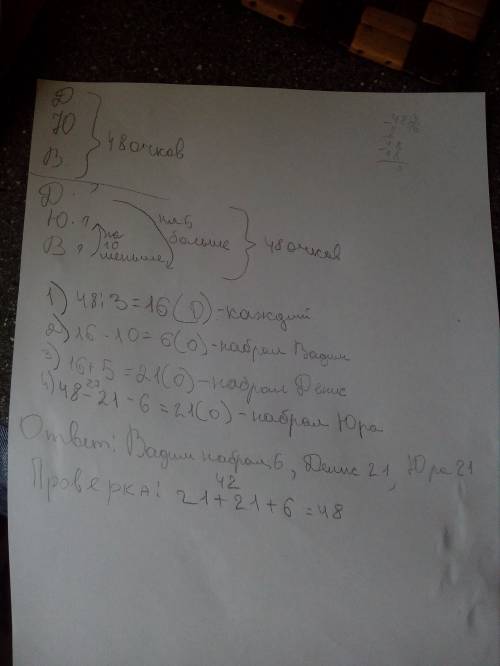 Д
Ю
В
48 очков
Д. ?
Ю. ?
В ?
на
10
меньше,
на 5
больше
48 очков
1) 48:3=16(О)-каждый
2) 16-10=6(О)-набрал Вадим
3) 16+5=21(О)-набрал Денис
27
4) 48-21-6=21(О)-набрал Юра
Ответ: Вадим набрал 6, Денис 21, Юра 21
42
Проверка: 21+21+6=48